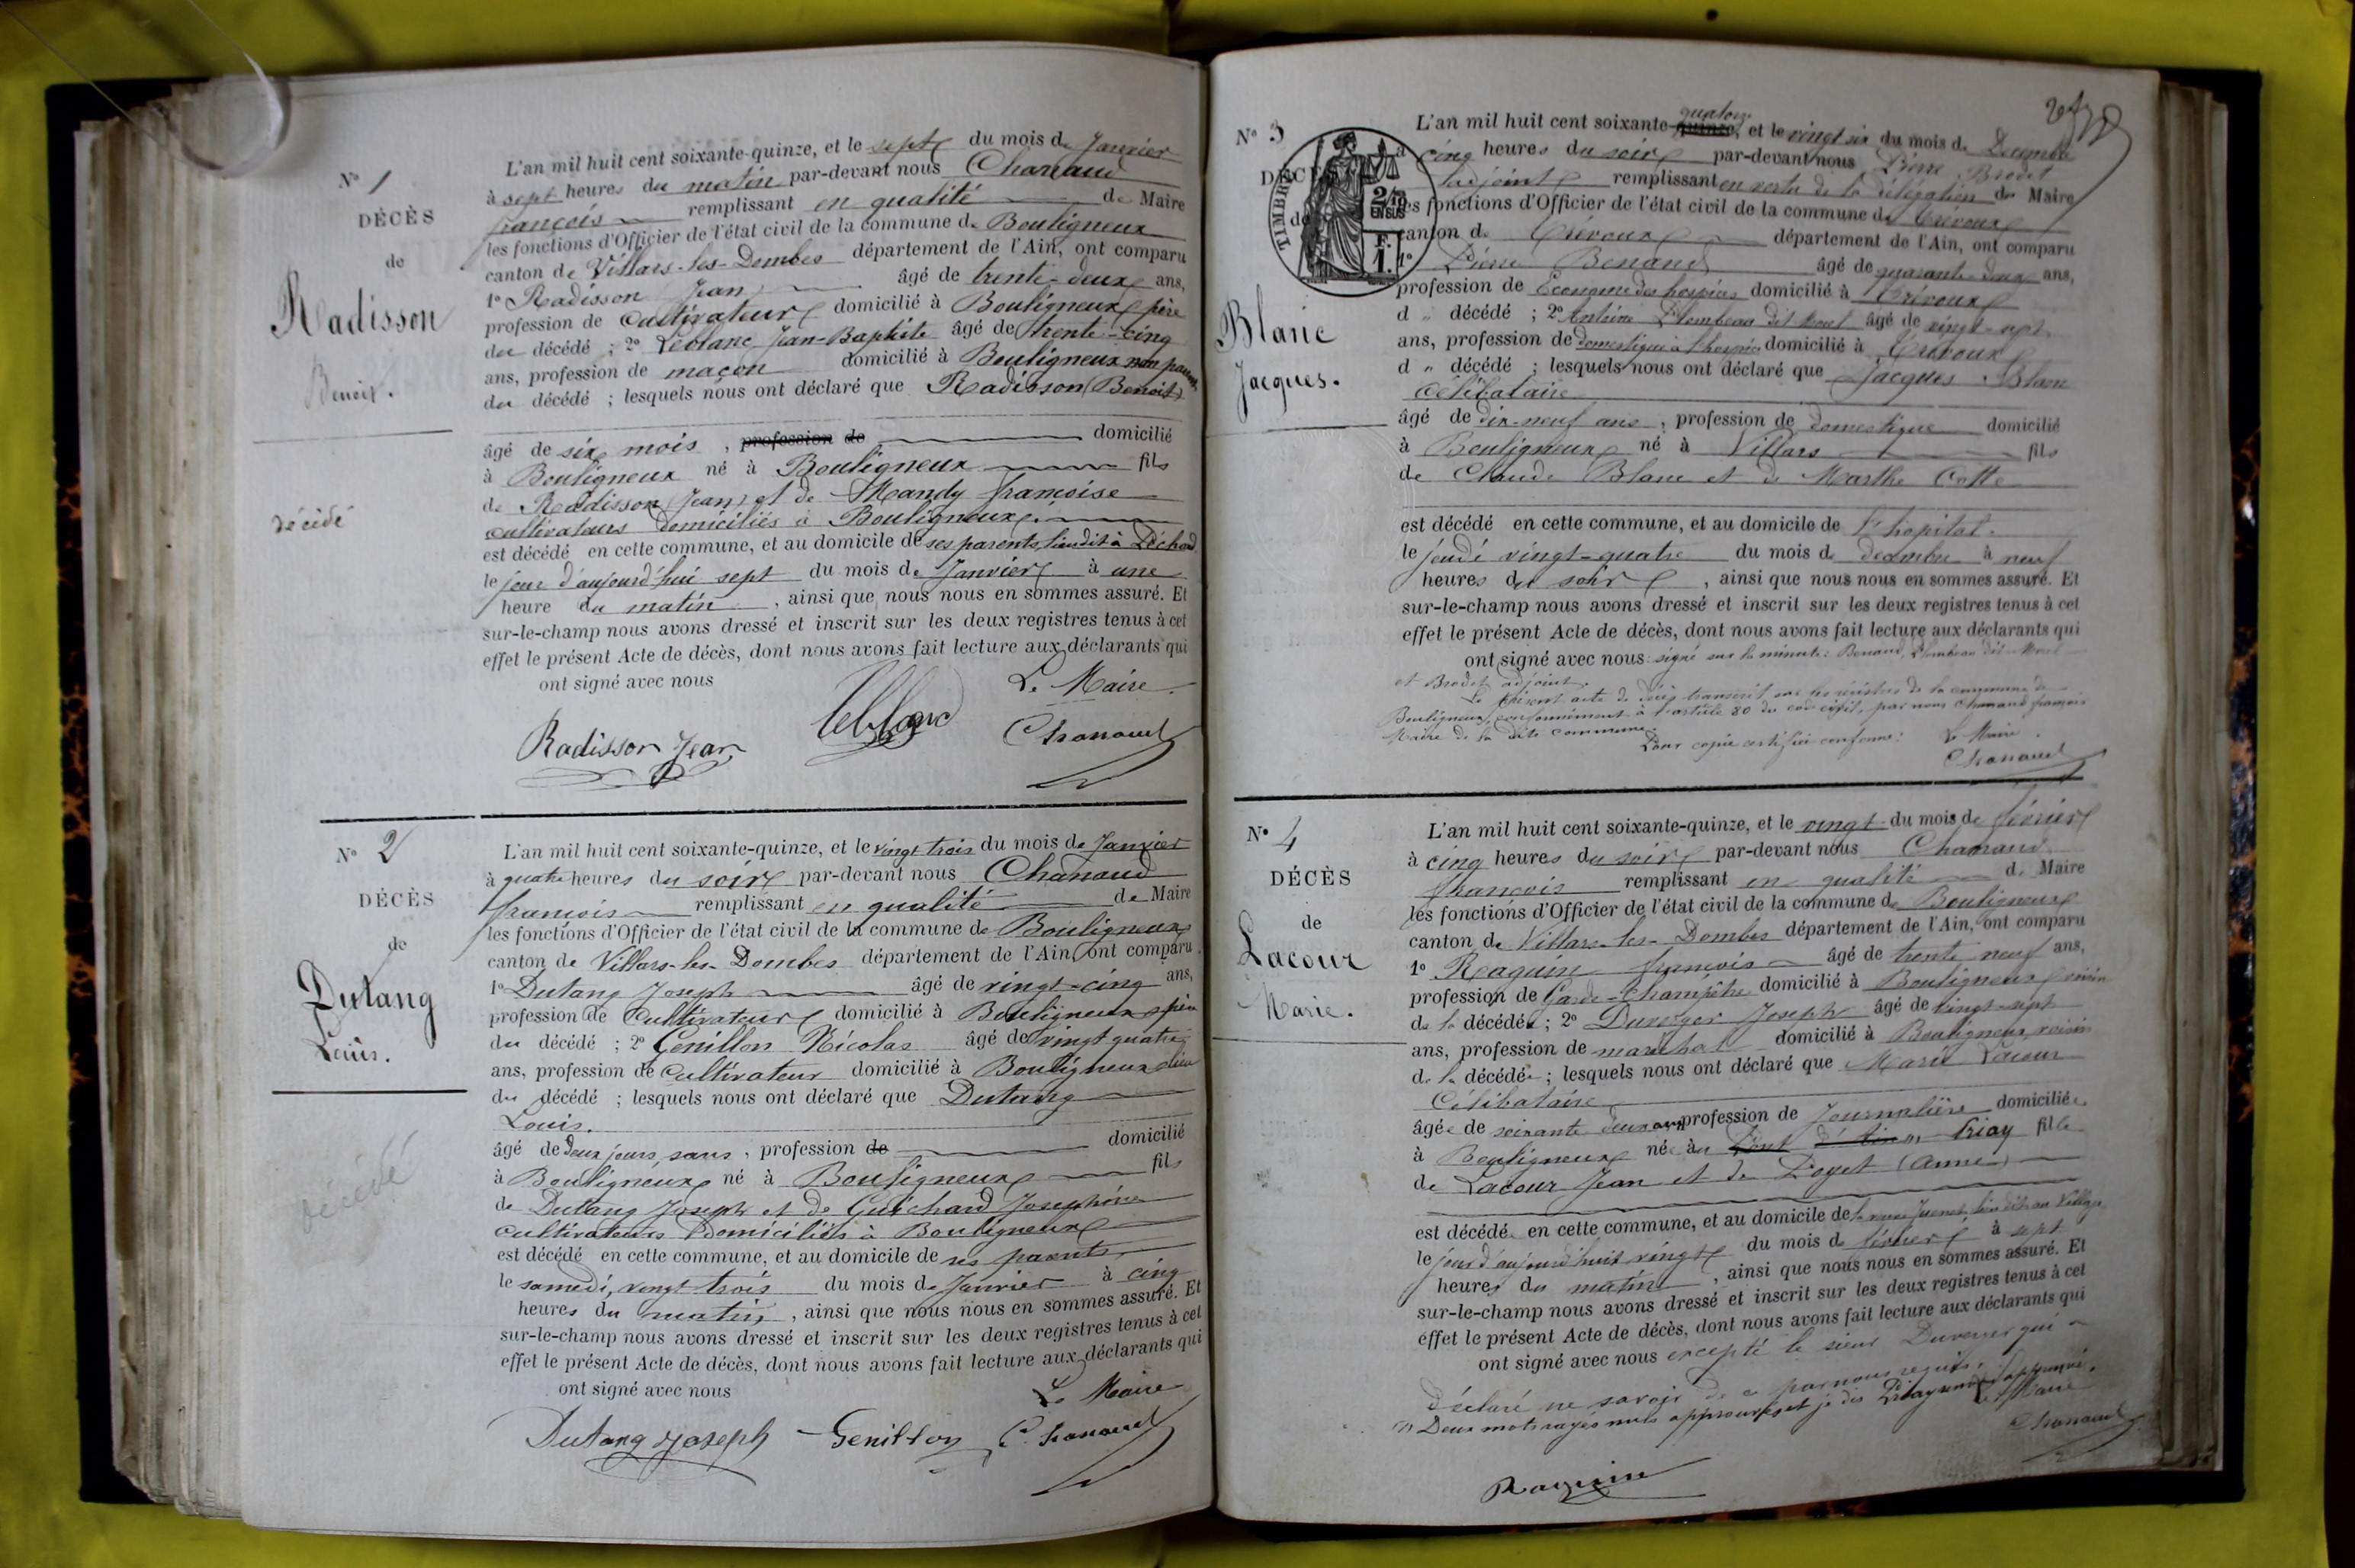 N° 1
DÉCÈS
de
Radisson
Benoit.
décédé
L'an mil huit cent soixante-quinze, et le sept du mois de Janvier
à sept heures du matin par-devant nous Chanaud
françois remplissant en qualité de Maire
les fonctions d'Officier de l'état civil de la commune de Bouligneux
canton de Villars-les-Dombes département de l'Ain, ont comparu
1° Radisson Jean âgé de trente-deux ans,
profession de Cultivateur domicilié à Bouligneux père
du décédé ; 2° Leblanc Jean-Baptiste âgé de trente-cinq
ans, profession de maçon domicilié à Bouligneux non parent
du décédé ; lesquels nous ont déclaré que Radisson (Benoit)
âgé de six mois , profession de domicilié
à Bouligneux né à Bouligneux fils
de Radisson Jean et de Mandy françoise
cultivateurs domiciliés à Bouligneux.
est décédé en cette commune, et au domicile de ses parents, lieu dit à
le jour d'aujourd'hui sept du mois de Janvier à une
heure du matin , ainsi que nous nous en sommes assuré. Et
sur-le-champ nous avons dressé et inscrit sur les deux registres tenus à cet
effet le présent Acte de décès, dont nous avons fait lecture aux déclarants qui
ont signé avec nous
Le Maire.
Radisson Jean Leblanc Chanaud
N° 2
DÉCÈS
de
Dutang
Louis.
décédé
L'an mil huit cent soixante-quinze, et le vingt trois du mois de Janvier
à quatre heures du soir par-devant nous Chanaud
francois remplissant en qualité de Maire
les fonctions d'Officier de l'état civil de la commune de Bouligneux
canton de Villars-les-Dombes département de l'Ain, ont comparu
1° Dutang Joseph âgé de vingt-cinq ans,
profession de Cultivateur domicilié à Bouligneux père
du décédé ; 2° Genillon Nicolas âgé de vingt quatre
ans, profession de Cultivateur domicilié à Bouligneux
du décédé ; lesquels nous ont déclaré que Dutang
Louis.
âgé de deux jours, sans , profession de domicilié
à Bouligneux né à Bouligneux fils
de Dutang Joseph et de Guichard Josephine
cultivateurs Domiciliés à Bouligneux
est décédé en cette commune, et au domicile de ses parents
le samedi, vingt trois du mois de Janvier à cinq
heures du matin , ainsi que nous nous en sommes assuré. Et
sur-le-champ nous avons dressé et inscrit sur les deux registres tenus à cet
effet le présent Acte de décès, dont nous avons fait lecture aux déclarants qui
ont signé avec nous
Le Maire
Dutang Joseph Genillon Chanaud
N° 3
DÉCÈS
de
TIMBRE
2/10 EN SUS
F. 1.
Blanc
Jacques.
L'an mil huit cent soixante-quinze, quatorze et le vingt six du mois de Decembre
à cinq heures du soir par-devant nous Pierre Brodet
adjoint remplissant en vertu de la délégation du Maire
les fonctions d'Officier de l'état civil de la commune de Trévoux
canton de Trévoux département de l'Ain, ont comparu
1° Pierre Benand âgé de quarante-deux ans,
profession de Econome des hospices domicilié à Trévoux
d " décédé ; 2° Antoine Plombeau dit Morel âgé de vingt-sept
ans, profession de domestique à l'hospice domicilié à Trévoux
d " décédé ; lesquels nous ont déclaré que Jacques Blanc
Célibataire
âgé de dix-neuf ans , profession de domestique domicilié
à Bouligneux né à Villars fils
de Claude Blanc et de Marthe Cotte
est décédé en cette commune, et au domicile de l'hopital.
le jeudi vingt-quatre du mois de decembre à neuf
heures du soir , ainsi que nous nous en sommes assuré. Et
sur-le-champ nous avons dressé et inscrit sur les deux registres tenus à cet
effet le présent Acte de décès, dont nous avons fait lecture aux déclarants qui
ont signé avec nous : signé sur la minute : Benand, Plombeau dit Morel
et Brodet adjoint.
Le présent acte de décès transcrit sur les registres de la commune de
Bouligneux, conformément à l'article 80 du code civil, par nous Chanaud françois
Maire de la dite commune.
Pour copie certifiée conforme : Le Maire.
Chanaud
N° 4
DÉCÈS
de
Lacour
Marie.
L'an mil huit cent soixante-quinze, et le vingt du mois de février
à cinq heures du soir par-devant nous Chanaud
françois remplissant en qualité de Maire
les fonctions d'Officier de l'état civil de la commune de Bouligneux
canton de Villars-les-Dombes département de l'Ain, ont comparu
1° Raquin françois âgé de trente neuf ans,
profession de Garde-Champêtre domicilié à Bouligneux voisin
de la décédée ; 2° Duverger Joseph âgé de vingt-sept
ans, profession de maréchal domicilié à Bouligneux voisin
de la décédée ; lesquels nous ont déclaré que Marie Lacour
Célibataire
âgée de soixante deux ans profession de Journalière domiciliée
à Bouligneux née à Pont d'Ain Priay fille
de Lacour Jean et de Poyet (Anne)
est décédée en cette commune, et au domicile de la veuve Juenet, lieu dit au Village
le jour d'aujourd'huit vingt du mois de février à sept
heures du matin , ainsi que nous nous en sommes assuré. Et
sur-le-champ nous avons dressé et inscrit sur les deux registres tenus à cet
effet le présent Acte de décès, dont nous avons fait lecture aux déclarants qui
ont signé avec nous excepté le sieur Duverger qui a
déclaré ne savoir de ce par nous requis.
(1) Deux mots rayés nuls approuvés et je dis Priay approuvé.
Le Maire
Chanaud
Raquin